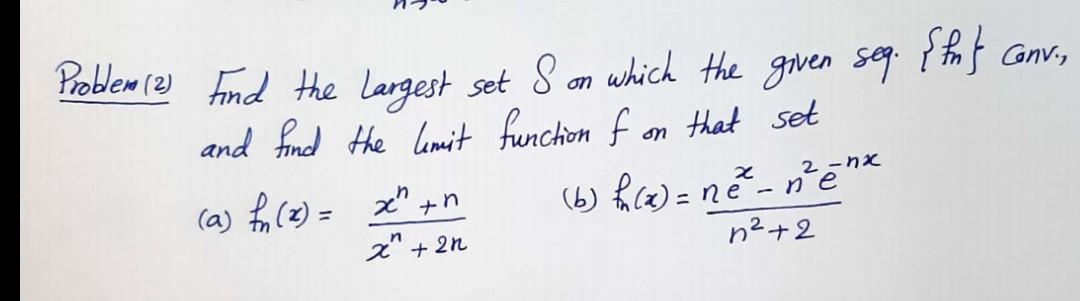 Problem (2) Find the largest set S on which the given seq. {fn} Conv.,
and find the limit function f on that set
(a) fn(x) = (xⁿ + n) / (xⁿ + 2n) (b) fn(x) = (neˣ - n²e⁻ⁿˣ) / (n² + 2)